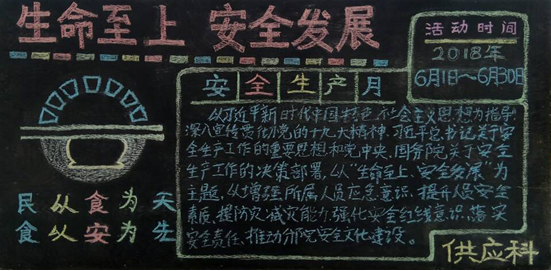 生命至上 安全发展
活动时间
2018年
6月1日~6月30日
安全生产月
以习近平新时代中国特色社会主义思想为指导,
深入宣传贯彻党的十九大精神、习近平总书记关于安
全生产工作的重要思想和党中央、国务院关于安全
生产工作的决策部署,以“生命至上、安全发展”为
主题,以增强所属人员应急意识、提升人员安全
素质、提防灾减灾能力、强化安全红线意识、落实
安全责任、推动分院安全文化建设。
民以食为天
食以安为先
供应科